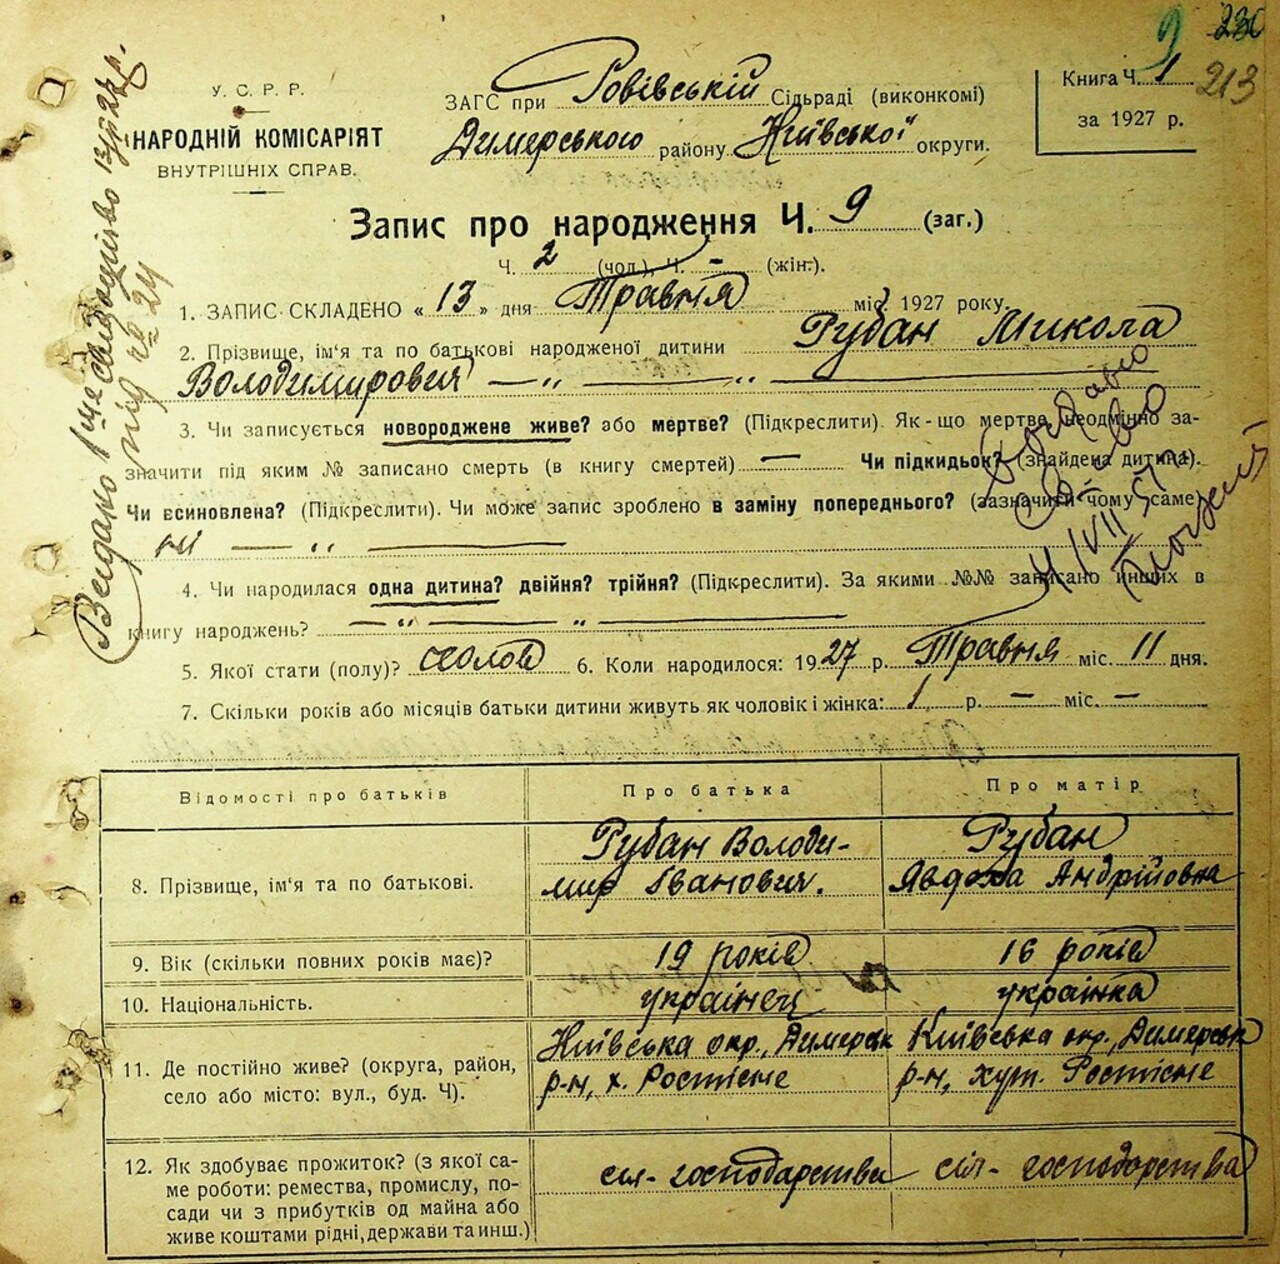 9 230
213
У. С. Р. Р.
НАРОДНІЙ КОМІСАРІЯТ
ВНУТРІШНІХ СПРАВ.
ЗАГС при Ровівській Сільраді (виконкомі)
Димерського району Київської округи.
Книга Ч. 1
за 1927 р.
Запис про народження Ч. 9 (заг.)
Ч. 2 (чол.), Ч. – (жін.).
1. ЗАПИС СКЛАДЕНО « 13 » дня Травня міс. 1927 року.
2. Прізвище, ім'я та по батькові народженої дитини Рубан Микола
Володимирович — „ — „ —
3. Чи записується новороджене живе? або мертве? (Підкреслити). Як-що мертве, неодмінно за-
значити під яким № записано смерть (в книгу смертей) — Чи підкидьок? (знайдена дитина).
Чи всиновлена? (Підкреслити). Чи може запис зроблено в заміну попереднього? (зазначити чому саме)
ні — „ —
4. Чи народилася одна дитина? двійня? трійня? (Підкреслити). За якими №№ записано инших в
книгу народжень? — „ — „ —
5. Якої стати (полу)? чолов 6. Коли народилося: 1927 р. Травня міс. 11 дня.
7. Скільки років або місяців батьки дитини живуть як чоловік і жінка: 1 р. — міс. —
Видано 1 ше свідоцтво
під № 24
4/VII
Відомості про батьків Про батька Про матір
8. Прізвище, ім'я та по батькові. Рубан Володи- Рубан
мир Іванович. Явдоха Андрійовна
9. Вік (скільки повних років має)? 19 років 16 років
10. Національність. українец українка
11. Де постійно живе? (округа, район, Київська окр., Димерськ Київська окр., Димерськ
село або місто: вул., буд. Ч). р-н, х. Ростісне р-н, хут. Ростісне
12. Як здобуває прожиток? (з якої са-
ме роботи: ремества, промислу, по- сіл- господарства сіл- господарства
сади чи з прибутків од майна або
живе коштами рідні, держави та инш.)